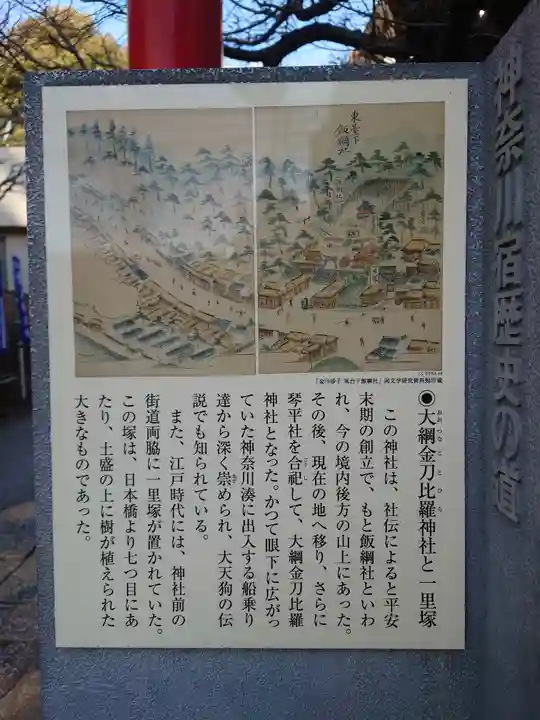 神奈川宿歴史の道
東臺下
飯綱社
◉大綱金刀比羅神社と一里塚
おおつなことひら
この神社は、社伝によると平安
末期の創立で、もと飯綱社といわ
れ、今の境内後方の山上にあった。
その後、現在の地へ移り、さらに
琴平社を合祀して、大綱金刀比羅
神社となった。かつて眼下に広がっ
ていた神奈川湊に出入する船乗り
達から深く崇められ、大天狗の伝
説でも知られている。
また、江戸時代には、神社前の
街道両脇に一里塚が置かれていた。
この塚は、日本橋より七つ目にあ
たり、土盛の上に樹が植えられた
大きなものであった。